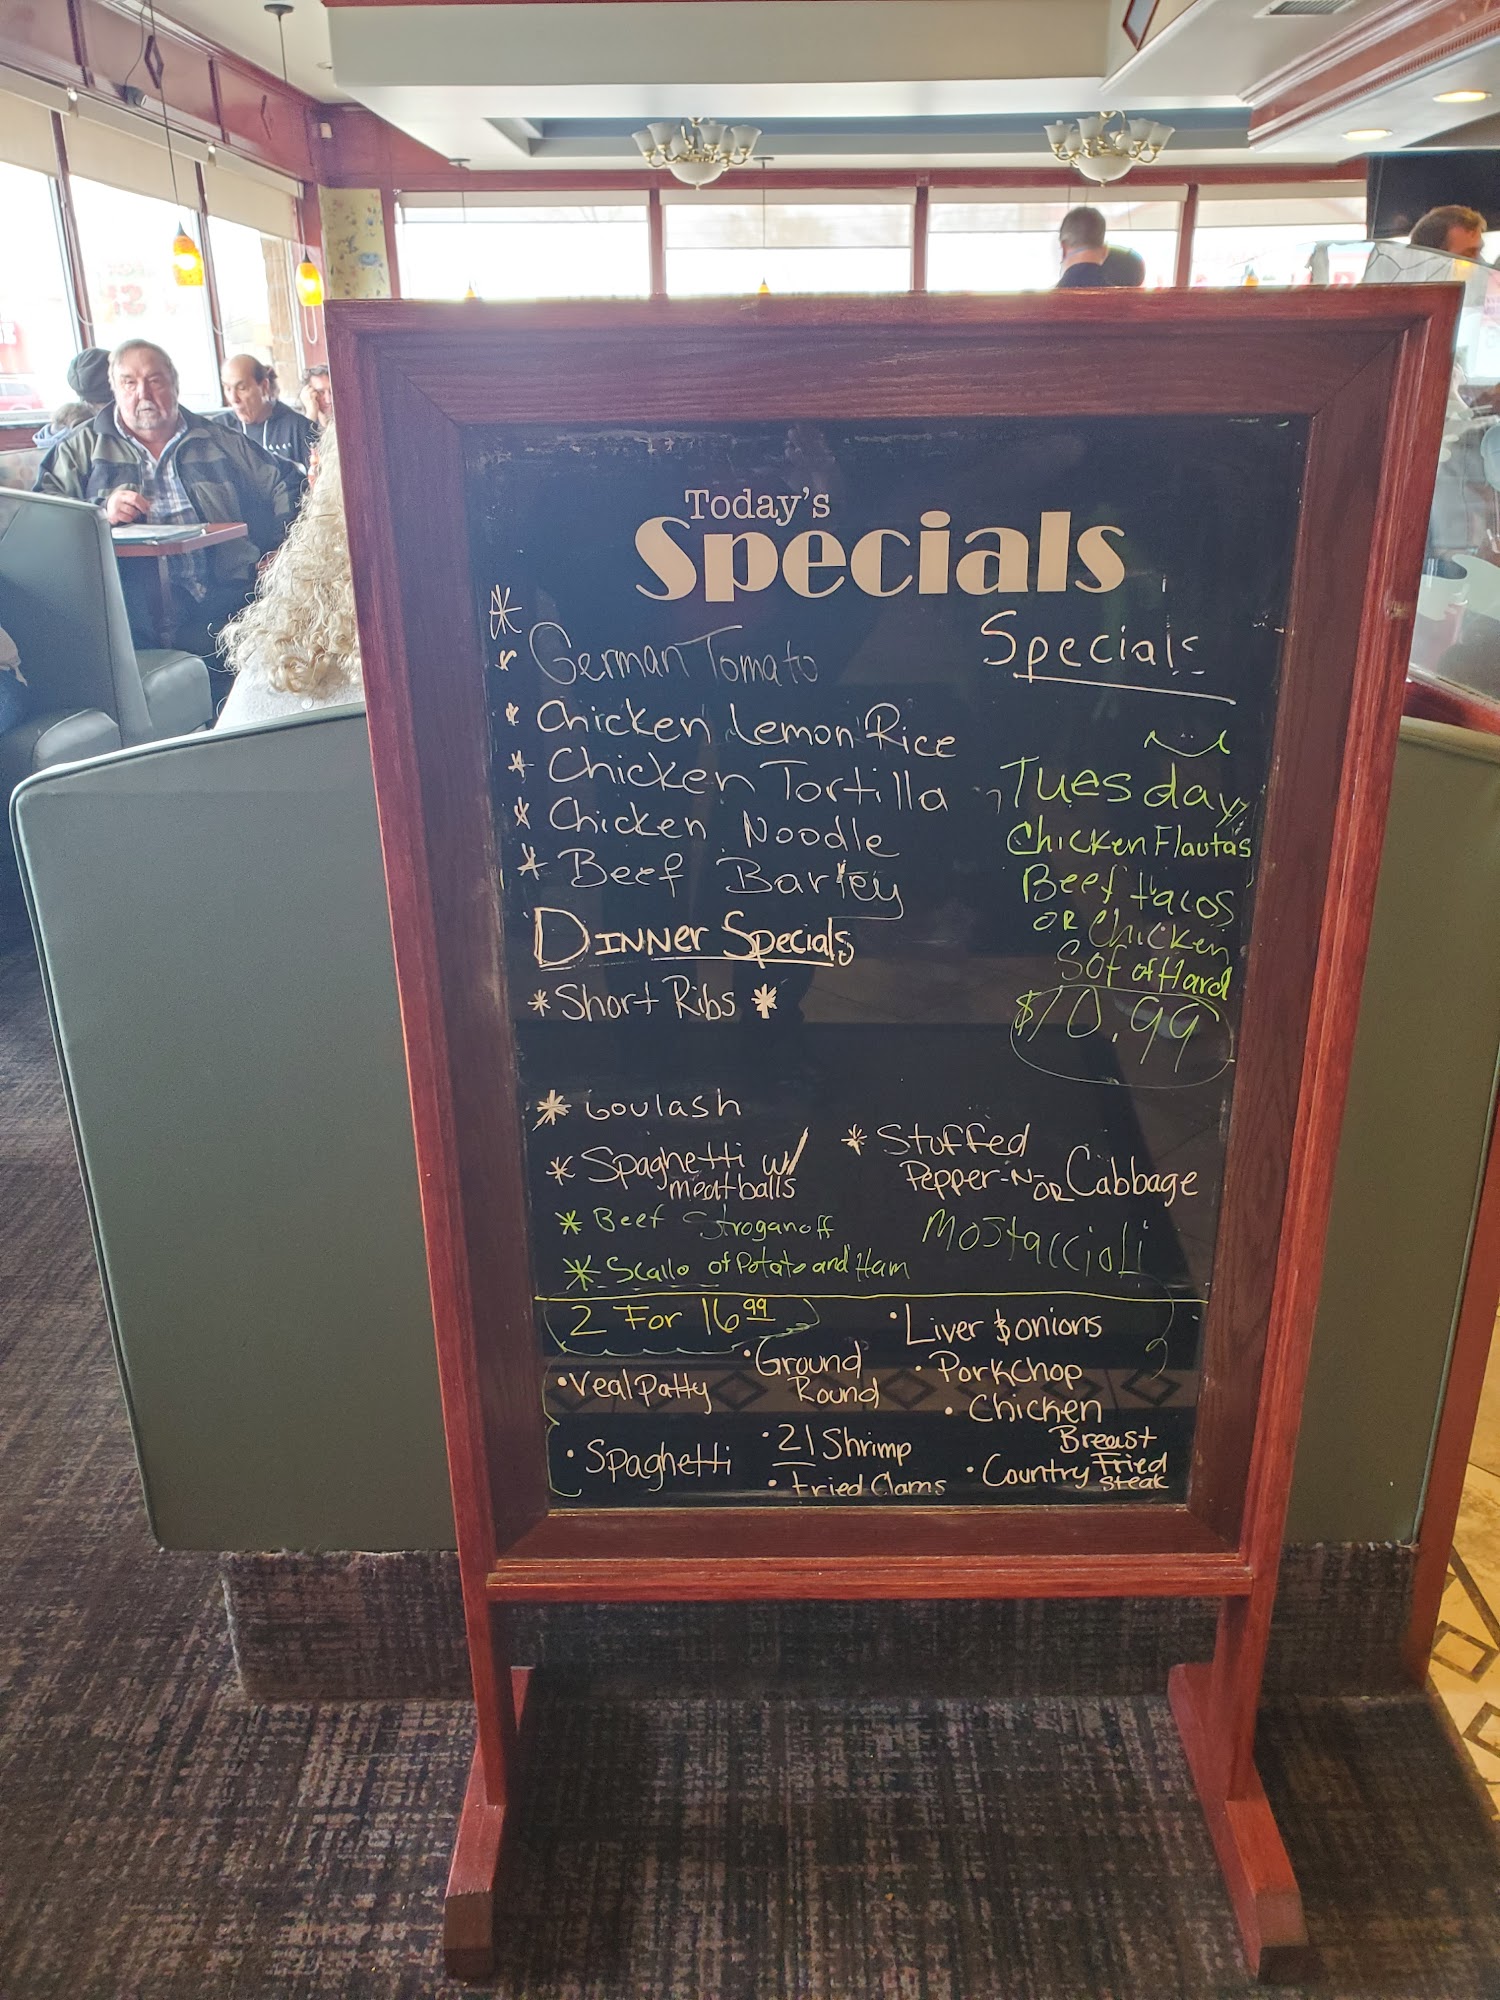 Today's
Specials
* German Tomato
* Chicken Lemon Rice
* Chicken Tortilla
* Chicken Noodle
* Beef Barley
Specials
Tuesday
Chicken Flautas
Beef tacos
OR Chicken
Sof of Hard
$10.99
Dinner Specials
* Short Ribs *
* Goulash
* Spaghetti w/
meatballs
* Beef Stroganoff
* Scallo of Potato and Ham
* Stuffed
Pepper-N-OR Cabbage
Mostaccioli
2 For 16.99
• Veal Patty
• Spaghetti
• Ground
Round
• 21 Shrimp
• Fried Clams
• Liver & onions
• Porkchop
• Chicken
Breast
• Country Fried
Steak